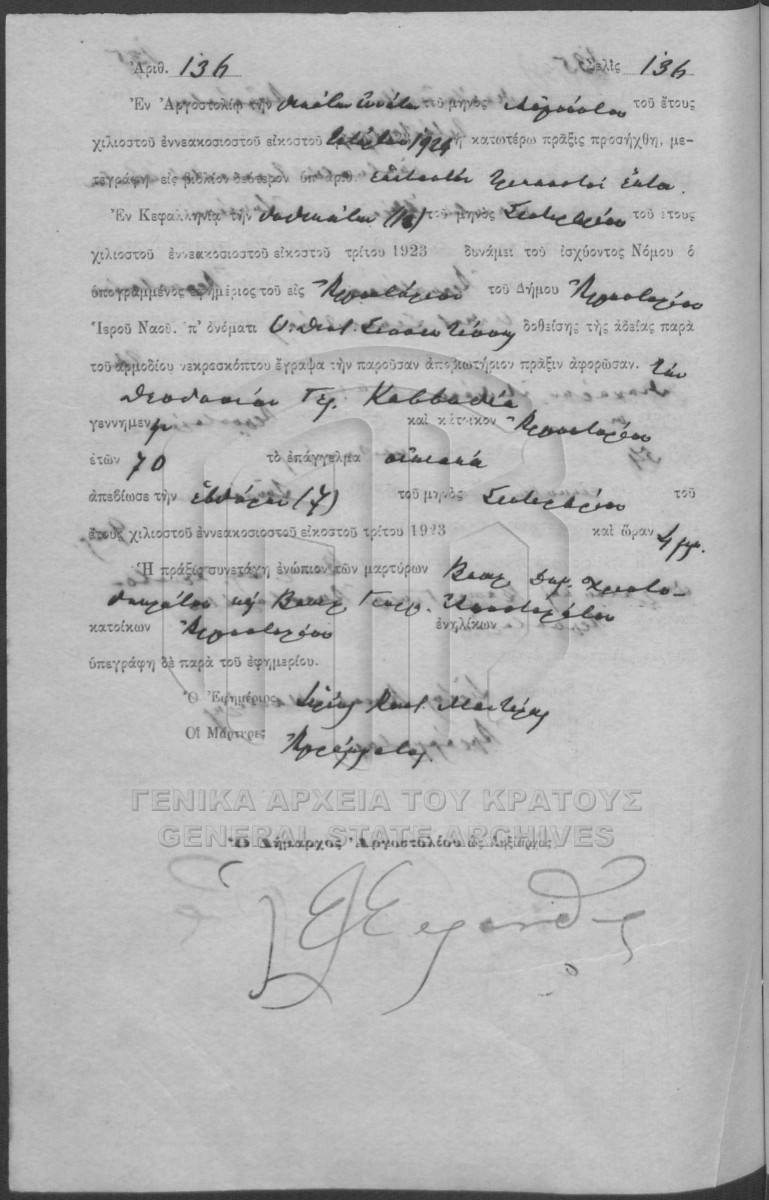 Ἀριθ. 136 Σελὶς 136
Ἐν Ἀργοστολίῳ τὴν δεκάτην ἐνάτην τοῦ μηνὸς Αὐγούστου τοῦ ἔτους
χιλιοστοῦ ἐννεακοσιοστοῦ εἰκοστοῦ τετάρτου 1924 ἡ κατωτέρω πρᾶξις προσήχθη, με-
τεγράφη εἰς βιβλίον δεύτερον ὑπ' ἀριθ. ἑκατοστὸν τριακοστὸν ἕκτον.
Ἐν Κεφαλληνίᾳ τὴν τοῦ μηνὸς Σεπτεμβρίου τοῦ ἔτους
χιλιοστοῦ ἐννεακοσιοστοῦ εἰκοστοῦ τρίτου 1923 δυνάμει τοῦ ἰσχύοντος Νόμου ὁ
ὑπογραμμένος ἐφημέριος τοῦ εἰς Ἀργοστόλιον τοῦ Δήμου Ἀργοστολίου
Ἱεροῦ Ναοῦ, ἐπ' ὀνόματι δοθείσης τῆς ἀδείας παρὰ
τοῦ ἁρμοδίου νεκροσκόπτου ἔγραψα τὴν παροῦσαν ἀποβιωτήριον πρᾶξιν ἀφορῶσαν. τὴν
Θεοδοσίαν Γερ. Καββαδία
γεννημεν καὶ κάτοικον Ἀργοστολίου
ἐτῶν 70 τὸ ἐπάγγελμα οἰκιακά
ἀπεβίωσε τὴν ἑβδόμην (7) τοῦ μηνὸς Σεπτεμβρίου τοῦ
ἔτους χιλιοστοῦ ἐννεακοσιοστοῦ εἰκοστοῦ τρίτου 1923 καὶ ὥραν 4 μμ.
Ἡ πρᾶξις συνετάχη ἐνώπιον τῶν μαρτύρων
κατοίκων Ἀργοστολίου ἐνηλίκων
ὑπεγράφη δὲ παρὰ τοῦ ἐφημερίου.
Ὁ Ἐφημέριος
Οἱ Μάρτυρες Ἀγράμματοι
ΓΕΝΙΚΑ ΑΡΧΕΙΑ ΤΟΥ ΚΡΑΤΟΥΣ
GENERAL STATE ARCHIVES
Ὁ Δήμαρχος Ἀργοστολίου ὡς Ληξίαρχος